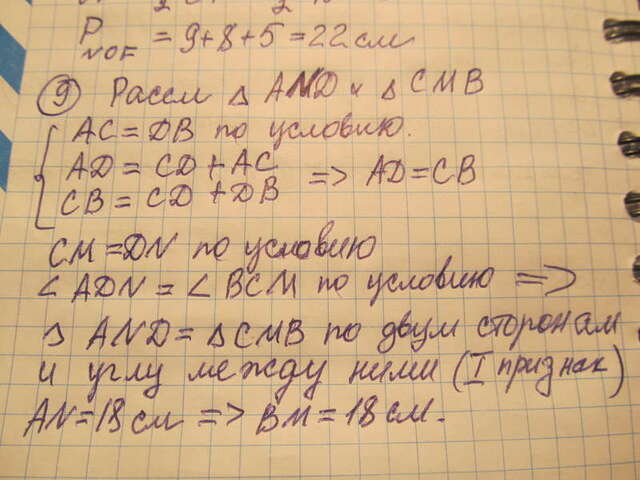 P NOF = 9+8+5=22см
9) Рассм △ AND и △ CMB
AC = DB по условию.
AD = CD + AC
CB = CD + DB => AD=CB
CM =DN по условию
∠ ADN = ∠ BCM по условию =>
△ AND = △ CMB по двум сторонам
и углу между ними (I признак)
AN=18см => BM=18см.